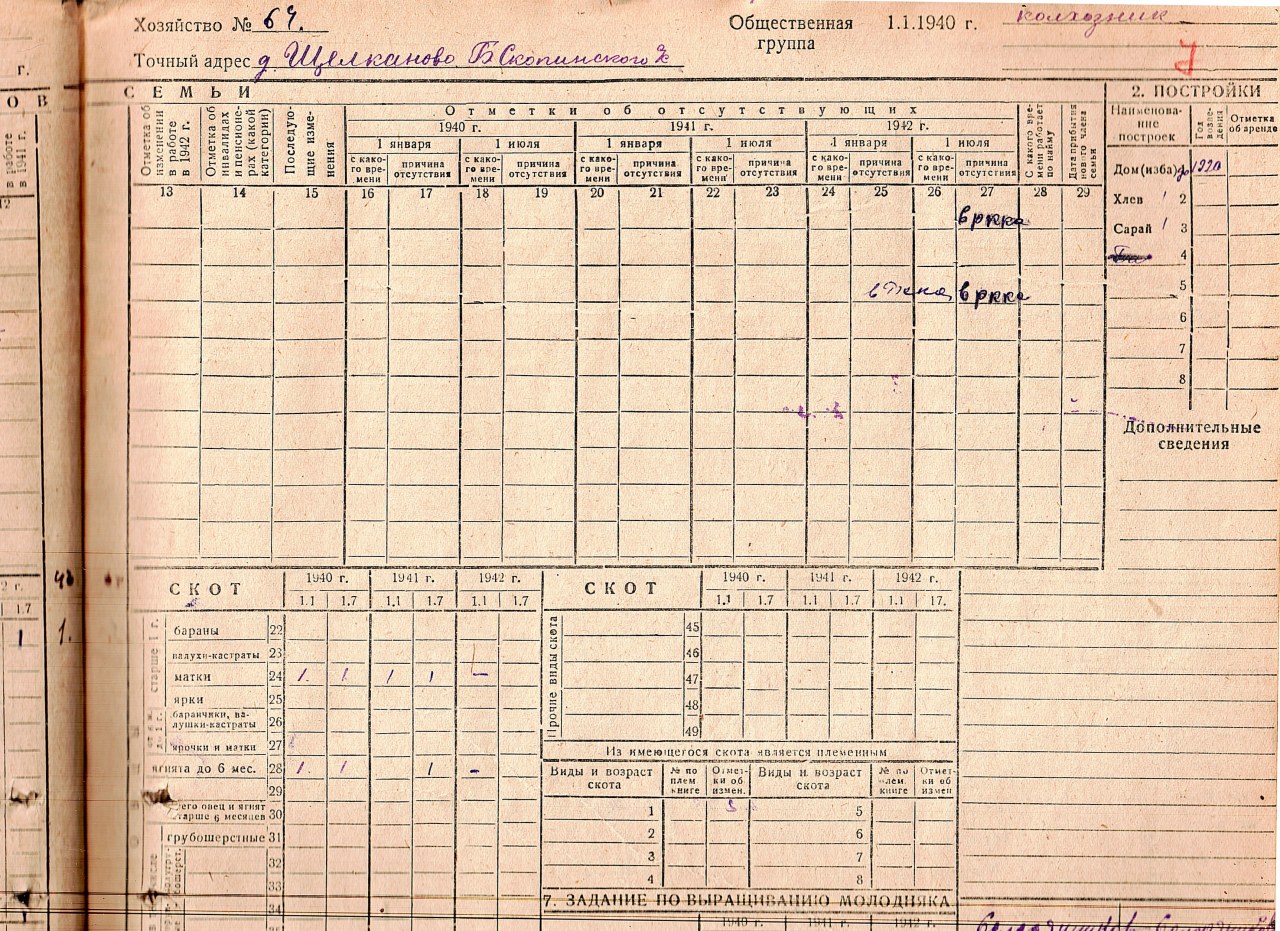 Хозяйство № 64. Общественная группа 1.1.1940 г. колхозник
Точный адрес д. Щелканово Б Скопинского
г.
ОВ
в работе в 1941 г.
12
СЕМЬИ
Отметка об изменении в работе в 1942 г.
Отметка об инвалидах и пенсионерах (какой категории)
Последующие изменения
Отметки об отсутствующих
1940 г. 1941 г. 1942 г.
1 января 1 июля 1 января 1 июля 1 января 1 июля
с какого времени причина отсутствия с какого времени причина отсутствия с какого времени причина отсутствия с какого времени причина отсутствия с какого времени причина отсутствия с какого времени причина отсутствия
С какого времени работает по найму
Дата прибытия нового члена семьи
13 14 15 16 17 18 19 20 21 22 23 24 25 26 27 28 29
в ркка
в ркка
2. ПОСТРОЙКИ
Наименование построек Год возведения Отметка об аренде
Дом (изба)
Хлев 2
Сарай 3
4
5
6
7
8
Дополнительные сведения
2 г.
1.7
1
1.
СКОТ 1940 г. 1941 г. 1942 г.
1.1 1.7 1.1 1.7 1.1 1.7
старше 1 г.
бараны 22
валухи-кастраты 23
матки 24 1 1 1 1 -
ярки 25
баранчики, валушки-кастраты 26
ярочки и матки 27
ягнята до 6 мес. 28 1 1 1 -
29
его овец и ягнят старше 6 месяцев 30
грубошерстные 31
32
33
34
СКОТ 1940 г. 1941 г. 1942 г.
1.1 1.7 1.1 1.7 1.1 17.
Прочие виды скота
45
46
47
48
49
Из имеющегося скота является племенным
Виды и возраст скота № по плем книге Отметки об измен. Виды и возраст скота № по плем. книге Отметки об измен
1 5
2 6
3 7
4 8
7. ЗАДАНИЕ ПО ВЫРАЩИВАНИЮ МОЛОДНЯКА
1940 г. 1941 г. 1942 г.